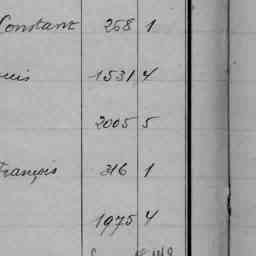 Constant 268 1
uis 1531 4
2005 5
François 316 1
1975 4